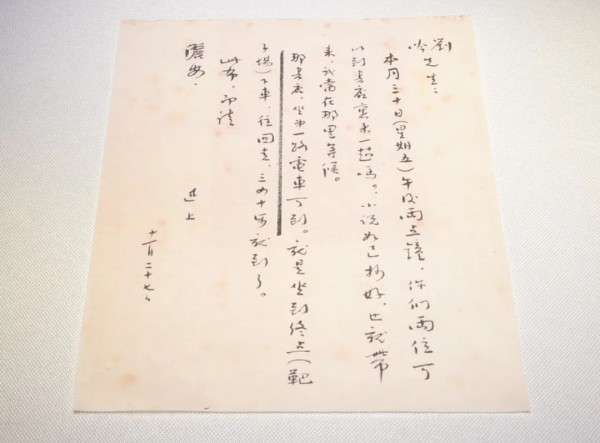 劉
吟先生：
本月三十日（星期五）午後兩点鐘，你們兩位可
以到書店裏來一趟嗎？小說如已抄好，也就帶
來，我當在那里等候。
那書店，坐第一路電車可到。就是坐到終点（靶
子場）下車，往回走，三四十步就到了。
此布，即請
儷安．
迅上
十一月二十七日